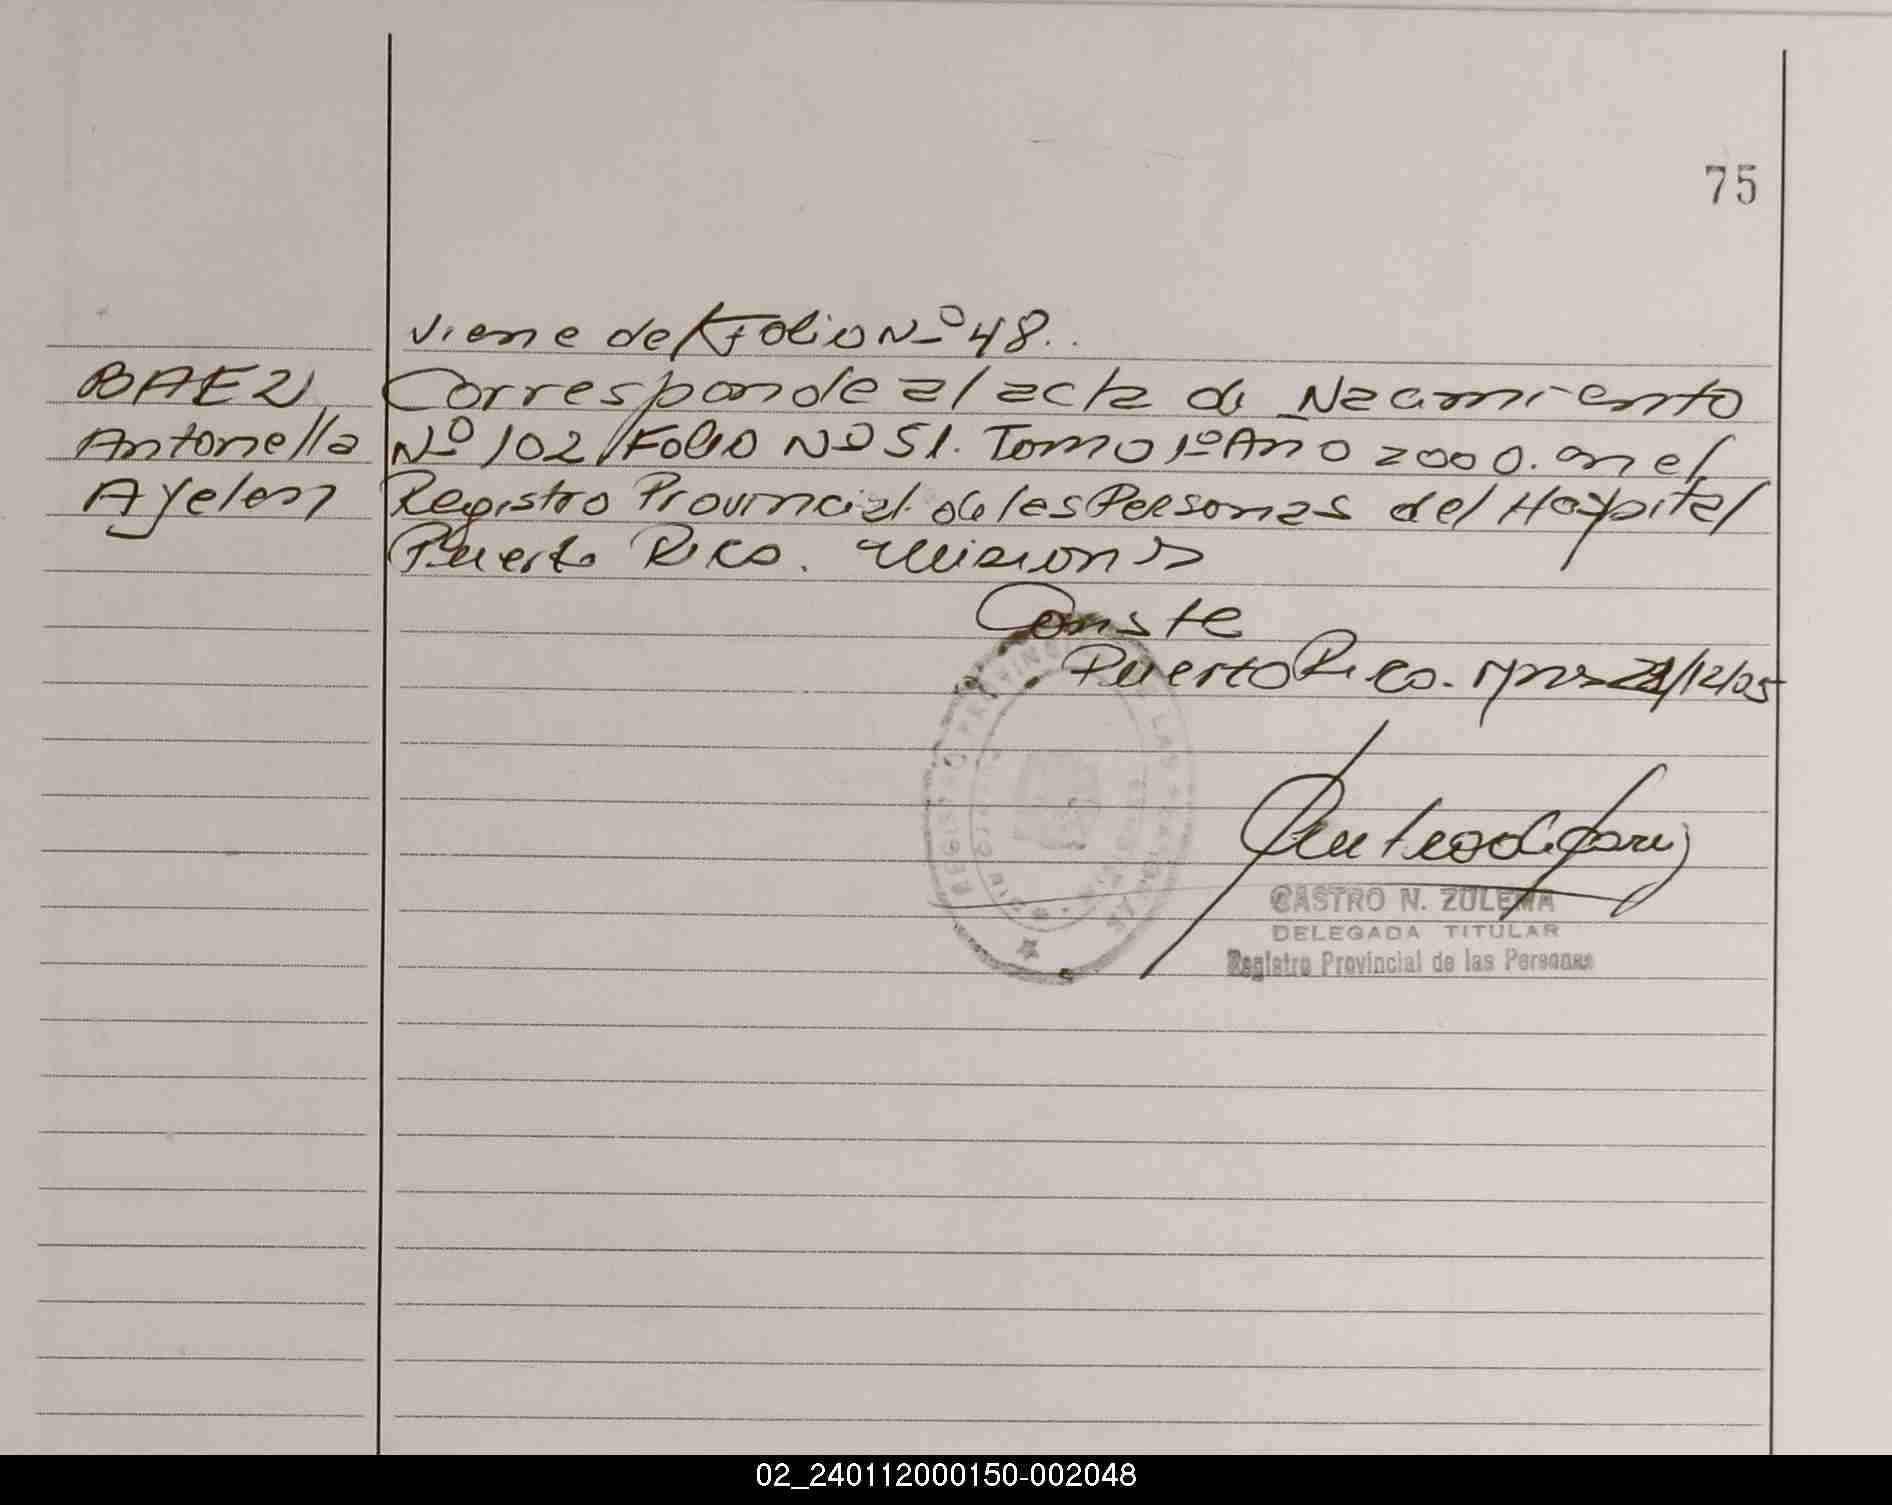 75
Viene del Folio Nº 48.
BAEZ
Antonella
Ayelen
Corresponde al acta de Nacimiento
Nº 102 / Folio Nº 51. Tomo 1º Año 2000. en el
Registro Provincial de las Personas del Hospital
Puerto Rico. Misiones
Conste
Puerto Rico. Mnes /12/05
REGISTRO PROVINCIAL DE LAS PERSONAS
PUERTO RICO - MISIONES
CASTRO N. ZULEMA
DELEGADA TITULAR
Registro Provincial de las Personas
02_240112000150-002048